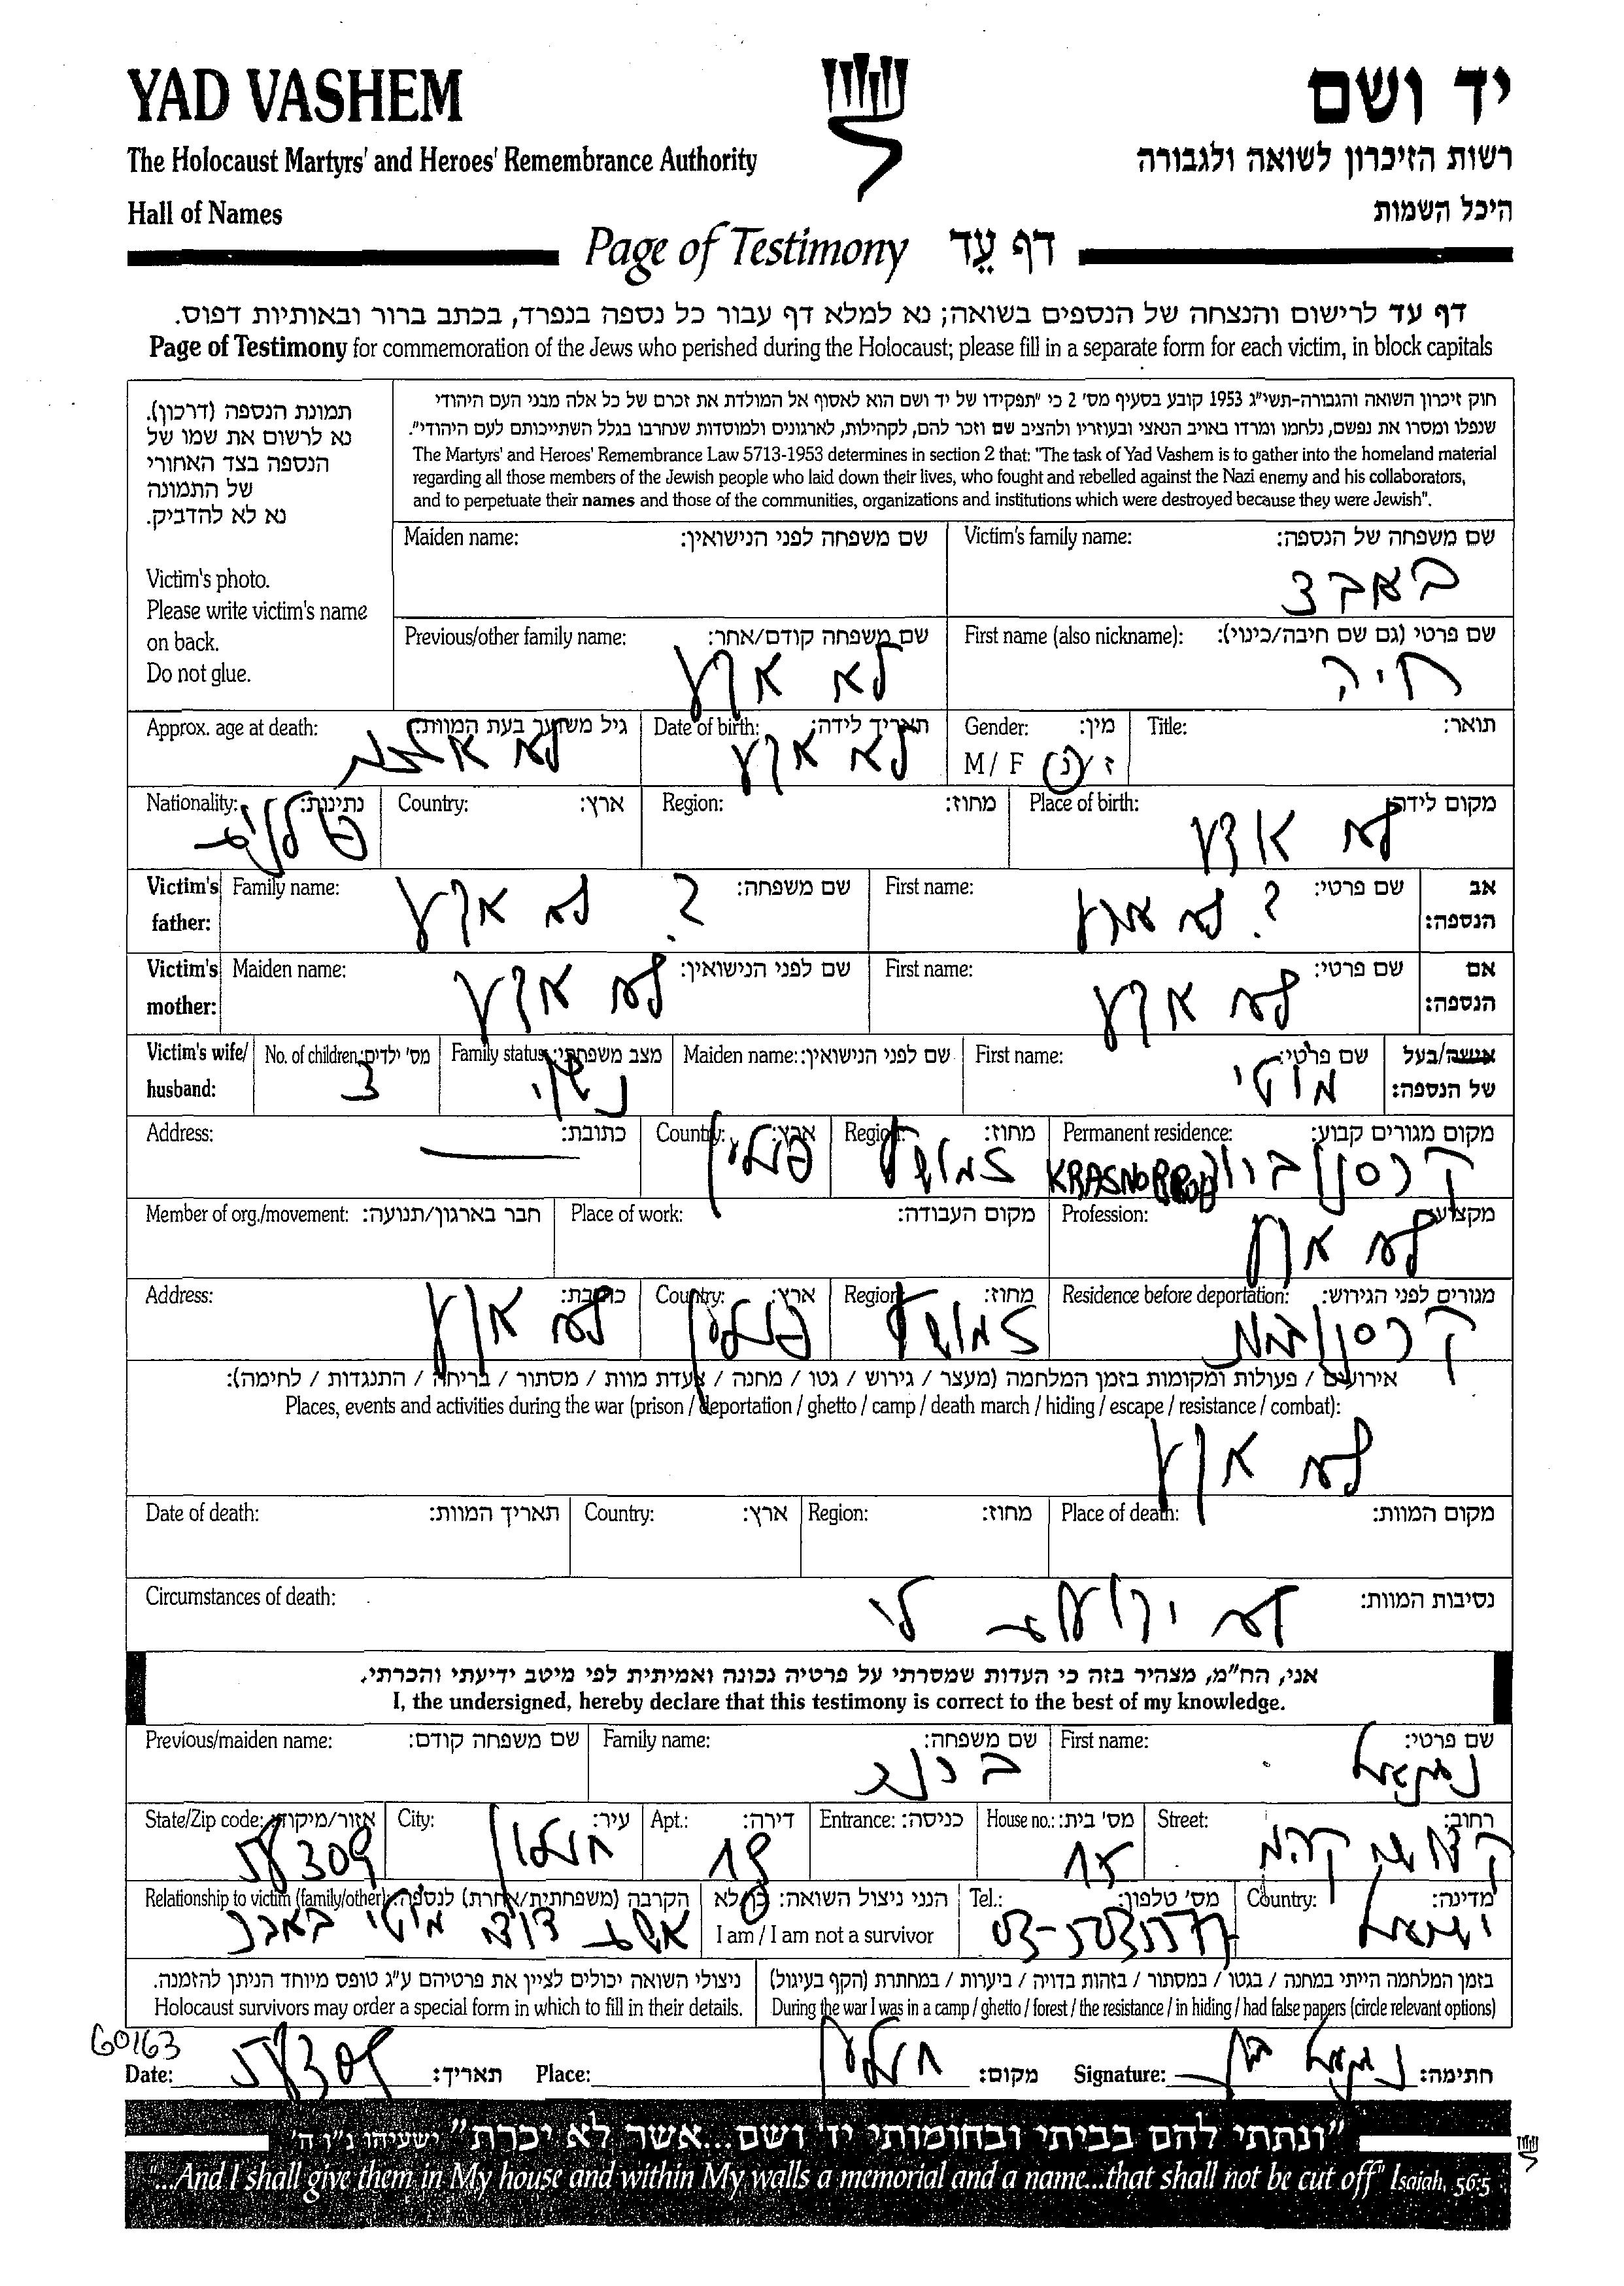 YAD VASHEM
יד ושם
The Holocaust Martyrs' and Heroes' Remembrance Authority
רשות הזיכרון לשואה ולגבורה
Hall of Names
היכל השמות
Page of Testimony דף עֵד
דף עד לרישום והנצחה של הנספים בשואה; נא למלא דף עבור כל נספה בנפרד, בכתב ברור ובאותיות דפוס.
Page of Testimony for commemoration of the Jews who perished during the Holocaust; please fill in a separate form for each victim, in block capitals
תמונת הנספה (דרכון).
נא לרשום את שמו של
הנספה בצד האחורי
של התמונה
נא לא להדביק.
Victim's photo.
Please write victim's name
on back.
Do not glue.
חוק זיכרון השואה והגבורה-תשי"ג 1953 קובע בסעיף מס' 2 כי "תפקידו של יד ושם הוא לאסוף אל המולדת את זכרם של כל אלה מבני העם היהודי
שנפלו ומסרו את נפשם, נלחמו ומרדו באויב הנאצי ובעוזריו ולהציב שם וזכר להם, לקהילות, לארגונים ולמוסדות שנחרבו בגלל השתייכותם לעם היהודי".
The Martyrs' and Heroes' Remembrance Law 5713-1953 determines in section 2 that: "The task of Yad Vashem is to gather into the homeland material
regarding all those members of the Jewish people who laid down their lives, who fought and rebelled against the Nazi enemy and his collaborators,
and to perpetuate their names and those of the communities, organizations and institutions which were destroyed because they were Jewish".
Maiden name: שם משפחה לפני הנישואין:
Victim's family name: שם משפחה של הנספה:
באבצ
Previous/other family name: שם משפחה קודם/אחר:
לא ארץ
First name (also nickname): שם פרטי (גם שם חיבה/כינוי):
חיה
Approx. age at death: גיל משוער בעת המוות:
לא
Date of birth: תאריך לידה:
לא
Gender: מין:
M / F ז / נ
Title: תואר:
Nationality: נתינות:
פולניה
Country: ארץ:
Region: מחוז:
Place of birth: מקום לידה:
לא
Victim's father: Family name: שם משפחה:
? לא
First name: שם פרטי:
? לא
אב הנספה:
Victim's mother: Maiden name: שם לפני הנישואין:
לא
First name: שם פרטי:
לא
אם הנספה:
Victim's wife/ husband:
No. of children: מס' ילדים:
3
Family status: מצב משפחתי:
נשוי
Maiden name: שם לפני הנישואין:
First name: שם פרטי:
מוטי
אישה/בעל של הנספה:
Address: כתובת:
Country: ארץ:
פולין
Region: מחוז:
זמושץ
Permanent residence: מקום מגורים קבוע:
קרסנוברוד KRASNOBROD
Member of org./movement: חבר בארגון/תנועה:
Place of work: מקום העבודה:
Profession: מקצוע:
לא
Address: כתובת:
לא
Country: ארץ:
פולין
Region: מחוז:
זמושץ
Residence before deportation: מגורים לפני הגירוש:
אירועים / פעולות ומקומות בזמן המלחמה (מעצר / גירוש / גטו / מחנה / צעדת מוות / מסתור / בריחה / התנגדות / לחימה):
Places, events and activities during the war (prison / deportation / ghetto / camp / death march / hiding / escape / resistance / combat):
לא
Date of death: תאריך המוות:
Country: ארץ:
Region: מחוז:
Place of death: מקום המוות:
Circumstances of death: נסיבות המוות:
לא ידועה לי
אני, הח"מ, מצהיר בזה כי העדות שמסרתי על פרטיה נכונה ואמיתית לפי מיטב ידיעתי והכרתי.
I, the undersigned, hereby declare that this testimony is correct to the best of my knowledge.
Previous/maiden name: שם משפחה קודם:
Family name: שם משפחה:
First name: שם פרטי:
State/Zip code: אזור/מיקוד:
City: עיר:
חולון
Apt.: דירה:
19
Entrance: כניסה:
House no.: מס' בית:
Street: רחוב:
Relationship to victim (family/other): הקרבה (משפחתית/אחרת) לנספה:
אשת דודי מוטי באבצ
הנני ניצול השואה: כן/לא
I am / I am not a survivor
Tel.: מס' טלפון:
Country: מדינה:
ישראל
ניצולי השואה יכולים לציין את פרטיהם ע"ג טופס מיוחד הניתן להזמנה.
Holocaust survivors may order a special form in which to fill in their details.
בזמן המלחמה הייתי במחנה / בגטו / במסתור / בזהות בדויה / ביערות / במחתרת (הקף בעיגול)
During the war I was in a camp / ghetto / forest / the resistance / in hiding / had false papers (circle relevant options)
60163
Date: תאריך:
Place: חולון מקום:
Signature: חתימה:
"ונתתי להם בביתי ובחומותי יד ושם...אשר לא יכרת" ישעיהו נ"ו ה'
"...And I shall give them in My house and within My walls a memorial and a name...that shall not be cut off" Isaiah, 56:5